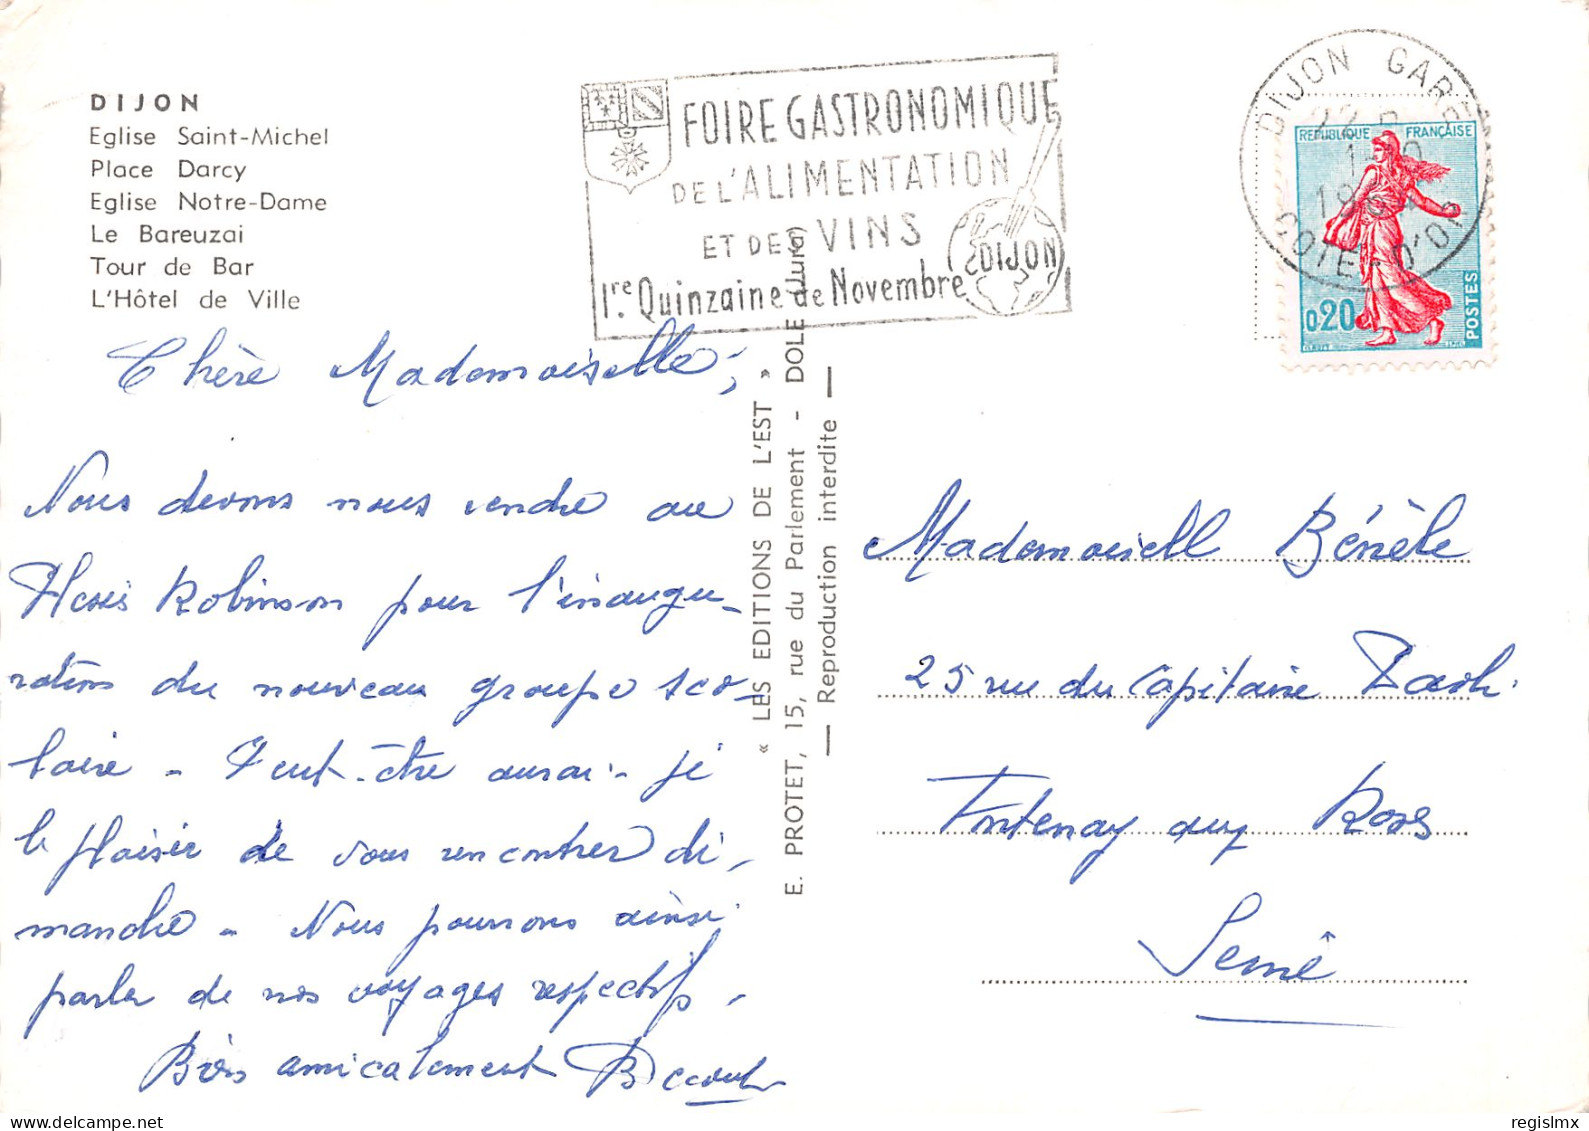 DIJON
Eglise Saint-Michel
Place Darcy
Eglise Notre-Dame
Le Bareuzai
Tour de Bar
L'Hôtel de Ville
FOIRE GASTRONOMIQUE
DE L'ALIMENTATION
ET DES VINS
1re Quinzaine de Novembre
DIJON
DIJON GARE
COTE-D'OR
REPUBLIQUE FRANÇAISE
0,20
POSTES
Chère Mademoiselle,
Nous devons nous rendre au
Plessis Robinson pour l'inaugu-
ration du nouveau groupe sco-
laire - Peut-être aurai-je
le plaisir de vous rencontrer di-
manche - Nous pourrons ainsi
parler de nos voyages respectifs.
Bien amicalement
« LES EDITIONS DE L'EST »
E. PROTET, 15, rue du Parlement - DOLE (Jura)
— Reproduction interdite —
Mademoiselle
25 rue du Capitaine
Fontenay aux Roses
Seine
regislmx